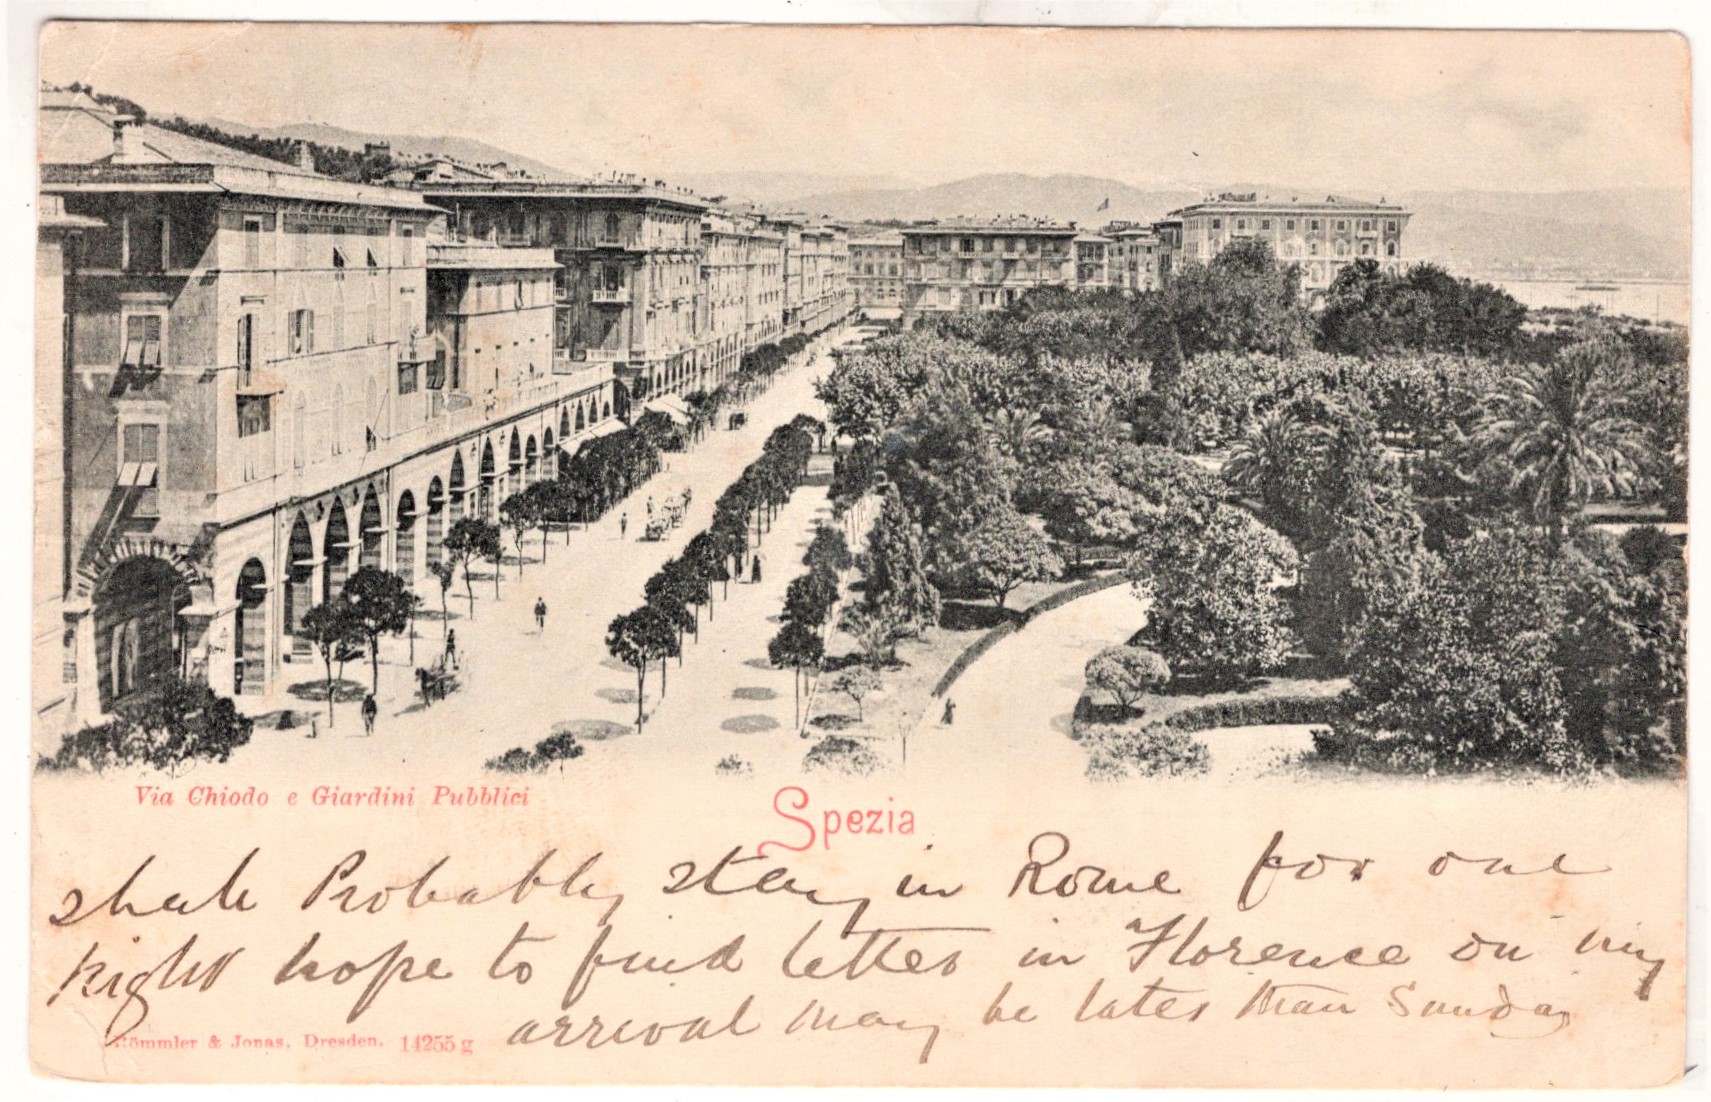 Via Chiodo e Giardini Pubblici
Spezia
shall Probably stay in Rome for one
night hope to find letter in Florence on my
arrival may be later than Sunday
Römmler & Jonas, Dresden. 14255 g